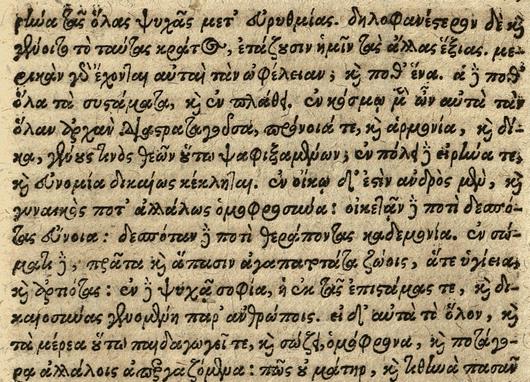 ρήνα τᾶς ὅλας ψυχᾶς μετ' εὐρυθμίας. δηλοφανέστερον δὲ κὴ
γένοιτο τὸ ταύτας κράτος, ἐτάζουσιν ἡμῖν τᾶς ἄλλας ἕξιας. με-
ρικὰν γὰρ ἔχονται αὐταὶ τὰν ὠφέλειαν; καὶ ποθ' ἕνα. ἁ δὲ ποθ'
ὅλα τὰ συστάματα, καὶ ἐν πλάθει. ἐν κόσμῳ μὲν ὦν αὐτὰ τὰν
ὅλαν ἀρχὰν διαστραταγοῦσα, πρόνοιά τε, καὶ ἁρμονία, καὶ δί-
κα, γένους τινὸς θεῶν οὕτω ψαφιξαμένων; ἐν πόλει δὲ εἰρήνα τε,
καὶ εὐνομία δικαίως κέκληται. ἐν οἴκῳ δ' ἐστὶν ἀνδρὸς μὲν, καὶ
γυναικὸς ποτ' ἀλλάλως ὁμοφροσύνα: οἰκετᾶν δὲ ποτὶ δεσπό-
τας εὔνοια: δεσποτᾶν δὲ ποτὶ θεράποντας καδεμονία. ἐν σώ-
ματι δὲ, πρᾶτα καὶ ἅπασιν ἀγαπατότατα ζώοις, ἅτε ὑγίεια,
καὶ ἀρτιότας: ἐν δὲ ψυχᾷ σοφία, ἡ ἐκ τᾶς ἐπιστάμας τε, καὶ δι-
καιοσύνας γενομένη παρ' ἀνθρώποις. εἰ δ' αὐτὰ τὸ ὅλον, καὶ
τὰ μέρεα οὕτω παιδαγωγεῖ τε, καὶ σώζει, ὁμόφρονα, καὶ ποτάγο-
ρα ἀλλάλοις ἀπεργαζόμενα: πῶς οὐ μάτηρ, καὶ τιθήνα πασᾶν